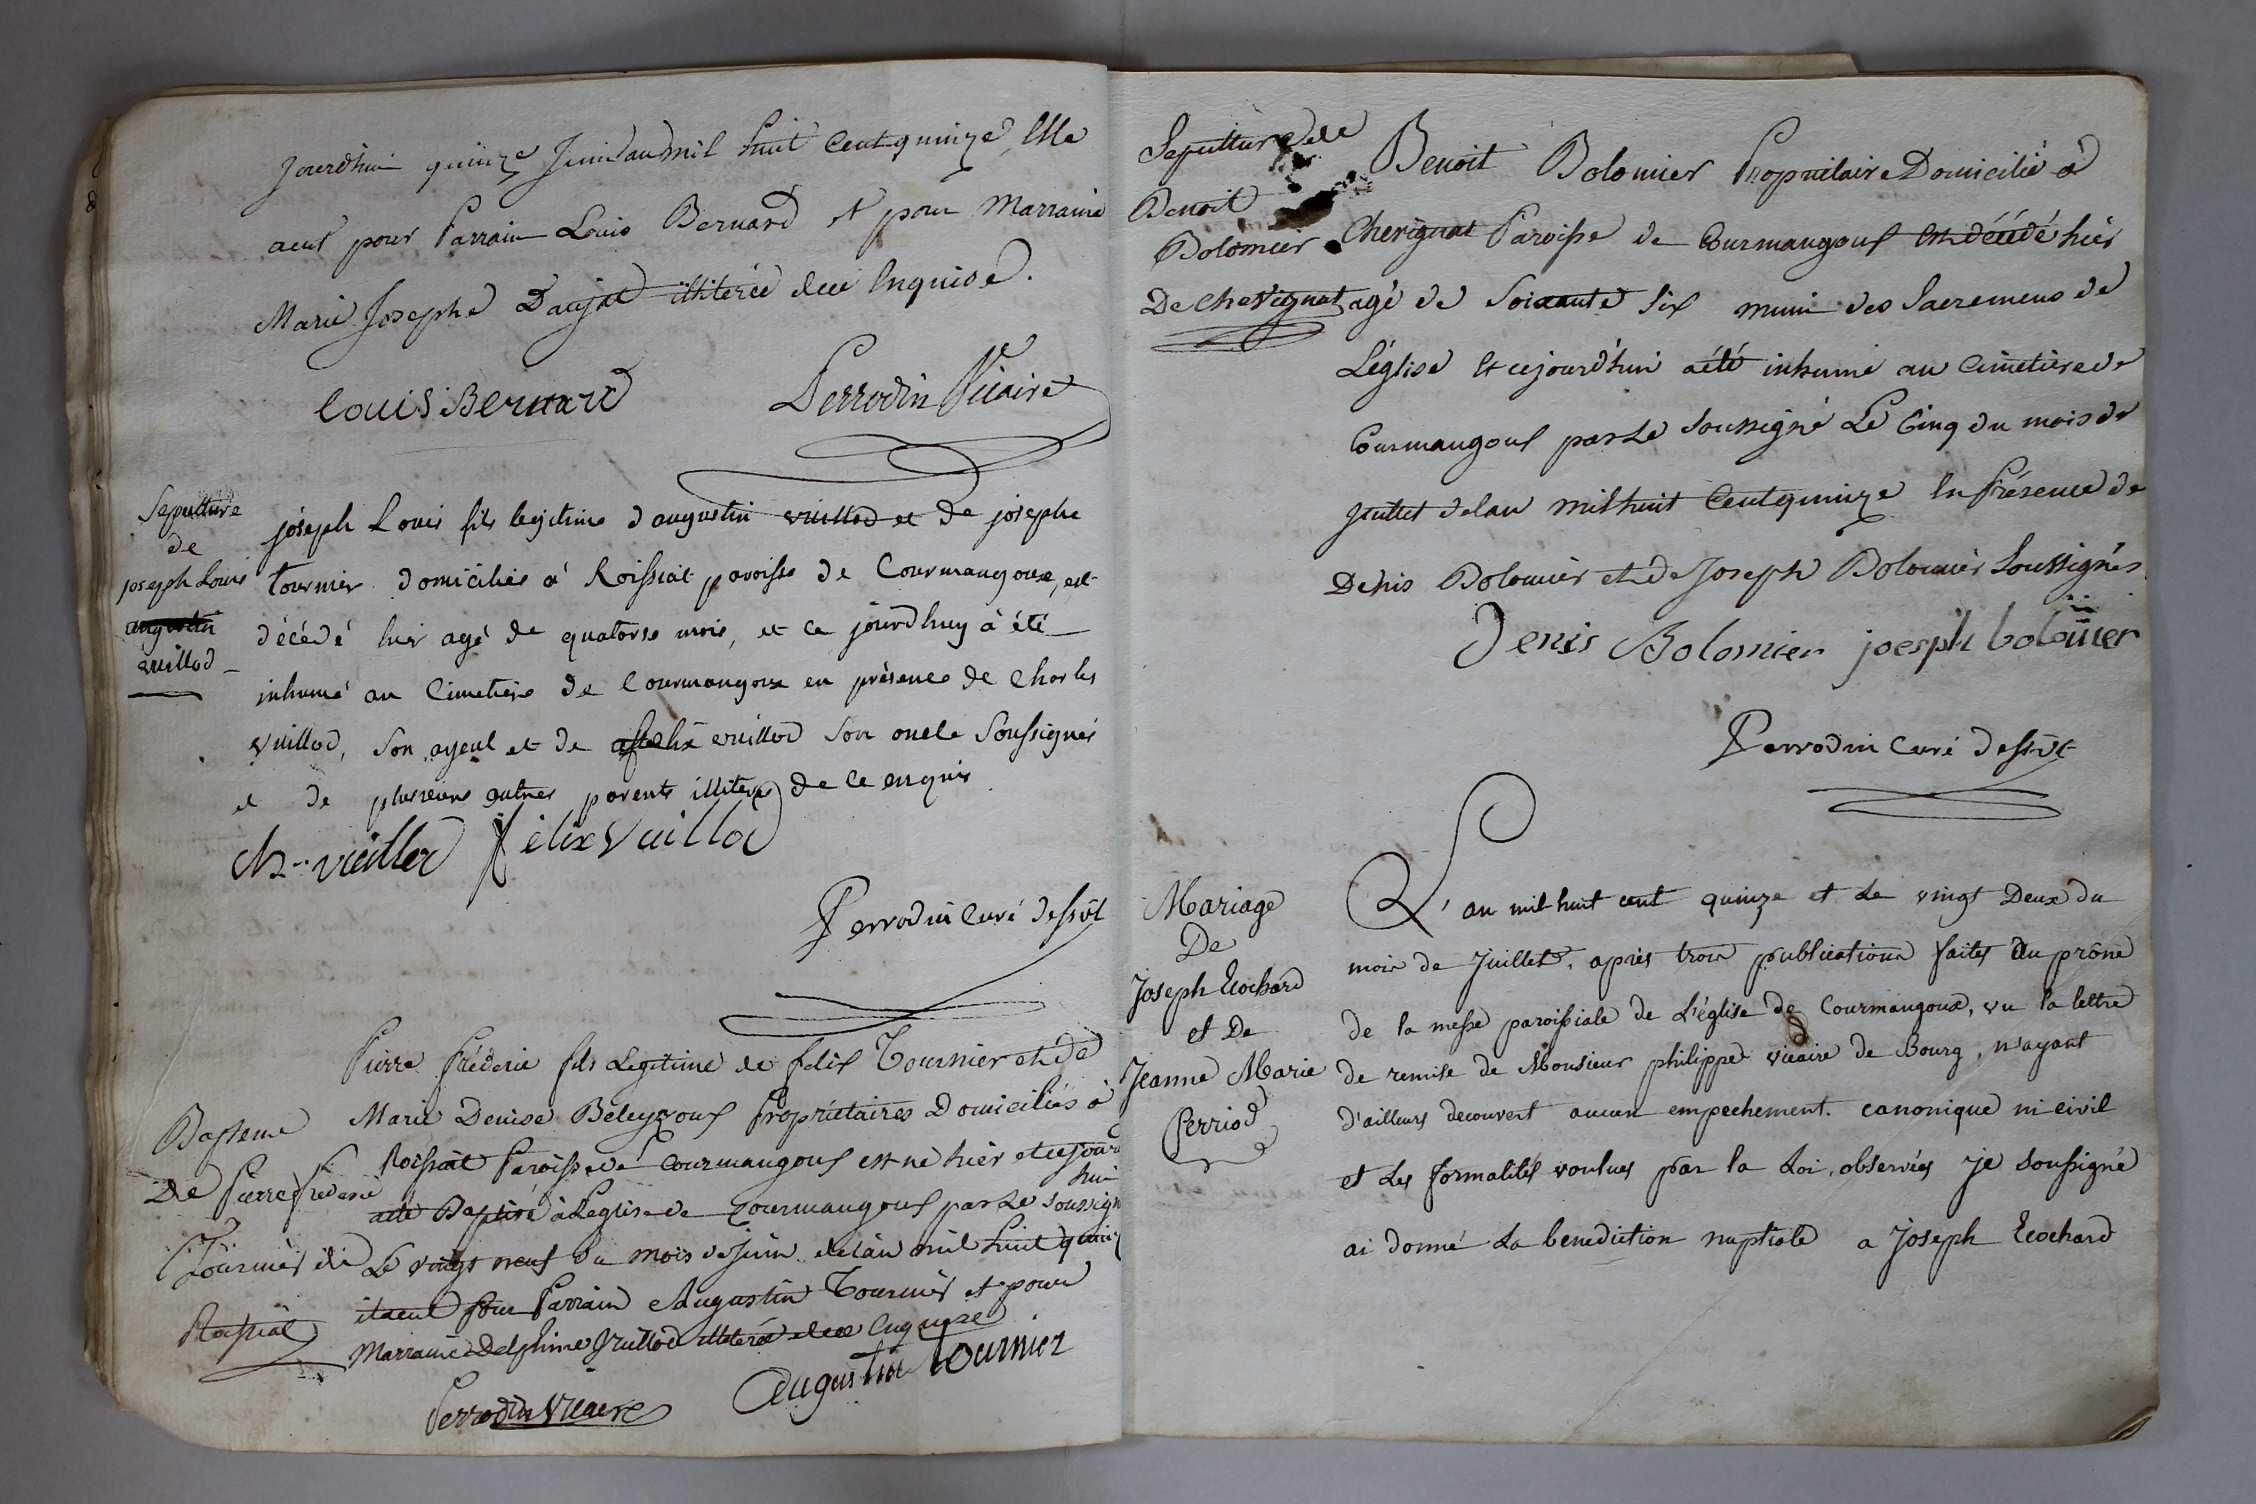 jourd'hui quinze Juin an mil huit cent quinze, Elle
aeut pour Parrain Louis Bernard et pour Marraine
Marie Josephe Daujat illiterée dece Enquise.
Louis Bernard Perrodin Vicaire
Sepulture
de
joseph Louis
augustin
vuillod
joseph Louis fils legitime d'augustin vuillod et de josephe
tournier domiciliés à Roissiat paroisse de Courmangoux, est
décédé hier agé de quatorse mois, et ce jourdhuy à été
inhumé au Cimetiere de Courmangoux en présence de Charles
vuillod, son ayeul et de felix vuillod son oncle Soussignés
et de plusieurs autres parents illiterés de ce enquis
Ch. vuillod felix Vuillod
Perrodin Curé dessvt
Baptême
De Pierre frederic
Tournier de
Roissiat
Pierre fréderic fils Legitime de felix Tournier et de
Marie Denise Beleyzoux Propriétaires Domiciliés à
Roissiat Paroisse de Courmangoux est né hier et cejourd
hui
aété Baptisé à l'eglise de Courmangoux par Le Soussigné
Le vingt neuf du mois de Juin de l'an mil huit quinz
il aeut pour Parrain Augustin Tournier et pour
Marraine Delphine Vuillod illiterée dece Enquise
Perrodin Vicaire Augustin tournier
Sepulture de
Benoit
Bolomier
De Chevignat
Benoit Bolomier Propriétaire Domicilié à
Chevignat Paroisse de Courmangoux est décédé hier
agé de Soixante Six muni des Sacremens de
L'église Et cejourd'hui aété inhumé au Cimetiere de
Courmangoux par Le Soussigné Le Cinq du mois de
Juillet de l'an mil huit Cent quinze En Présence de
Denis Bolomier et de Joseph Bolomier Soussignés
Denis Bolomier joesph bolomier
Perrodin Curé dessvt
Mariage
De
Joseph Ecochard
et De
Jeanne Marie
Perriod
L'an mil huit cent quinze et Le vingt Deux du
mois de Juillet, après trois publications faites Au prône
de la messe paroissiale de L'église de Courmangoux, vu la lettre
de remise de Monsieur philippe vicaire de Bourg, n'ayant
d'ailleurs decouvert aucun empechement canonique ni civil
et Les formalités voulues par la Loi, observées je soussigné
ai donné La benediction nuptiale a Joseph Ecochard